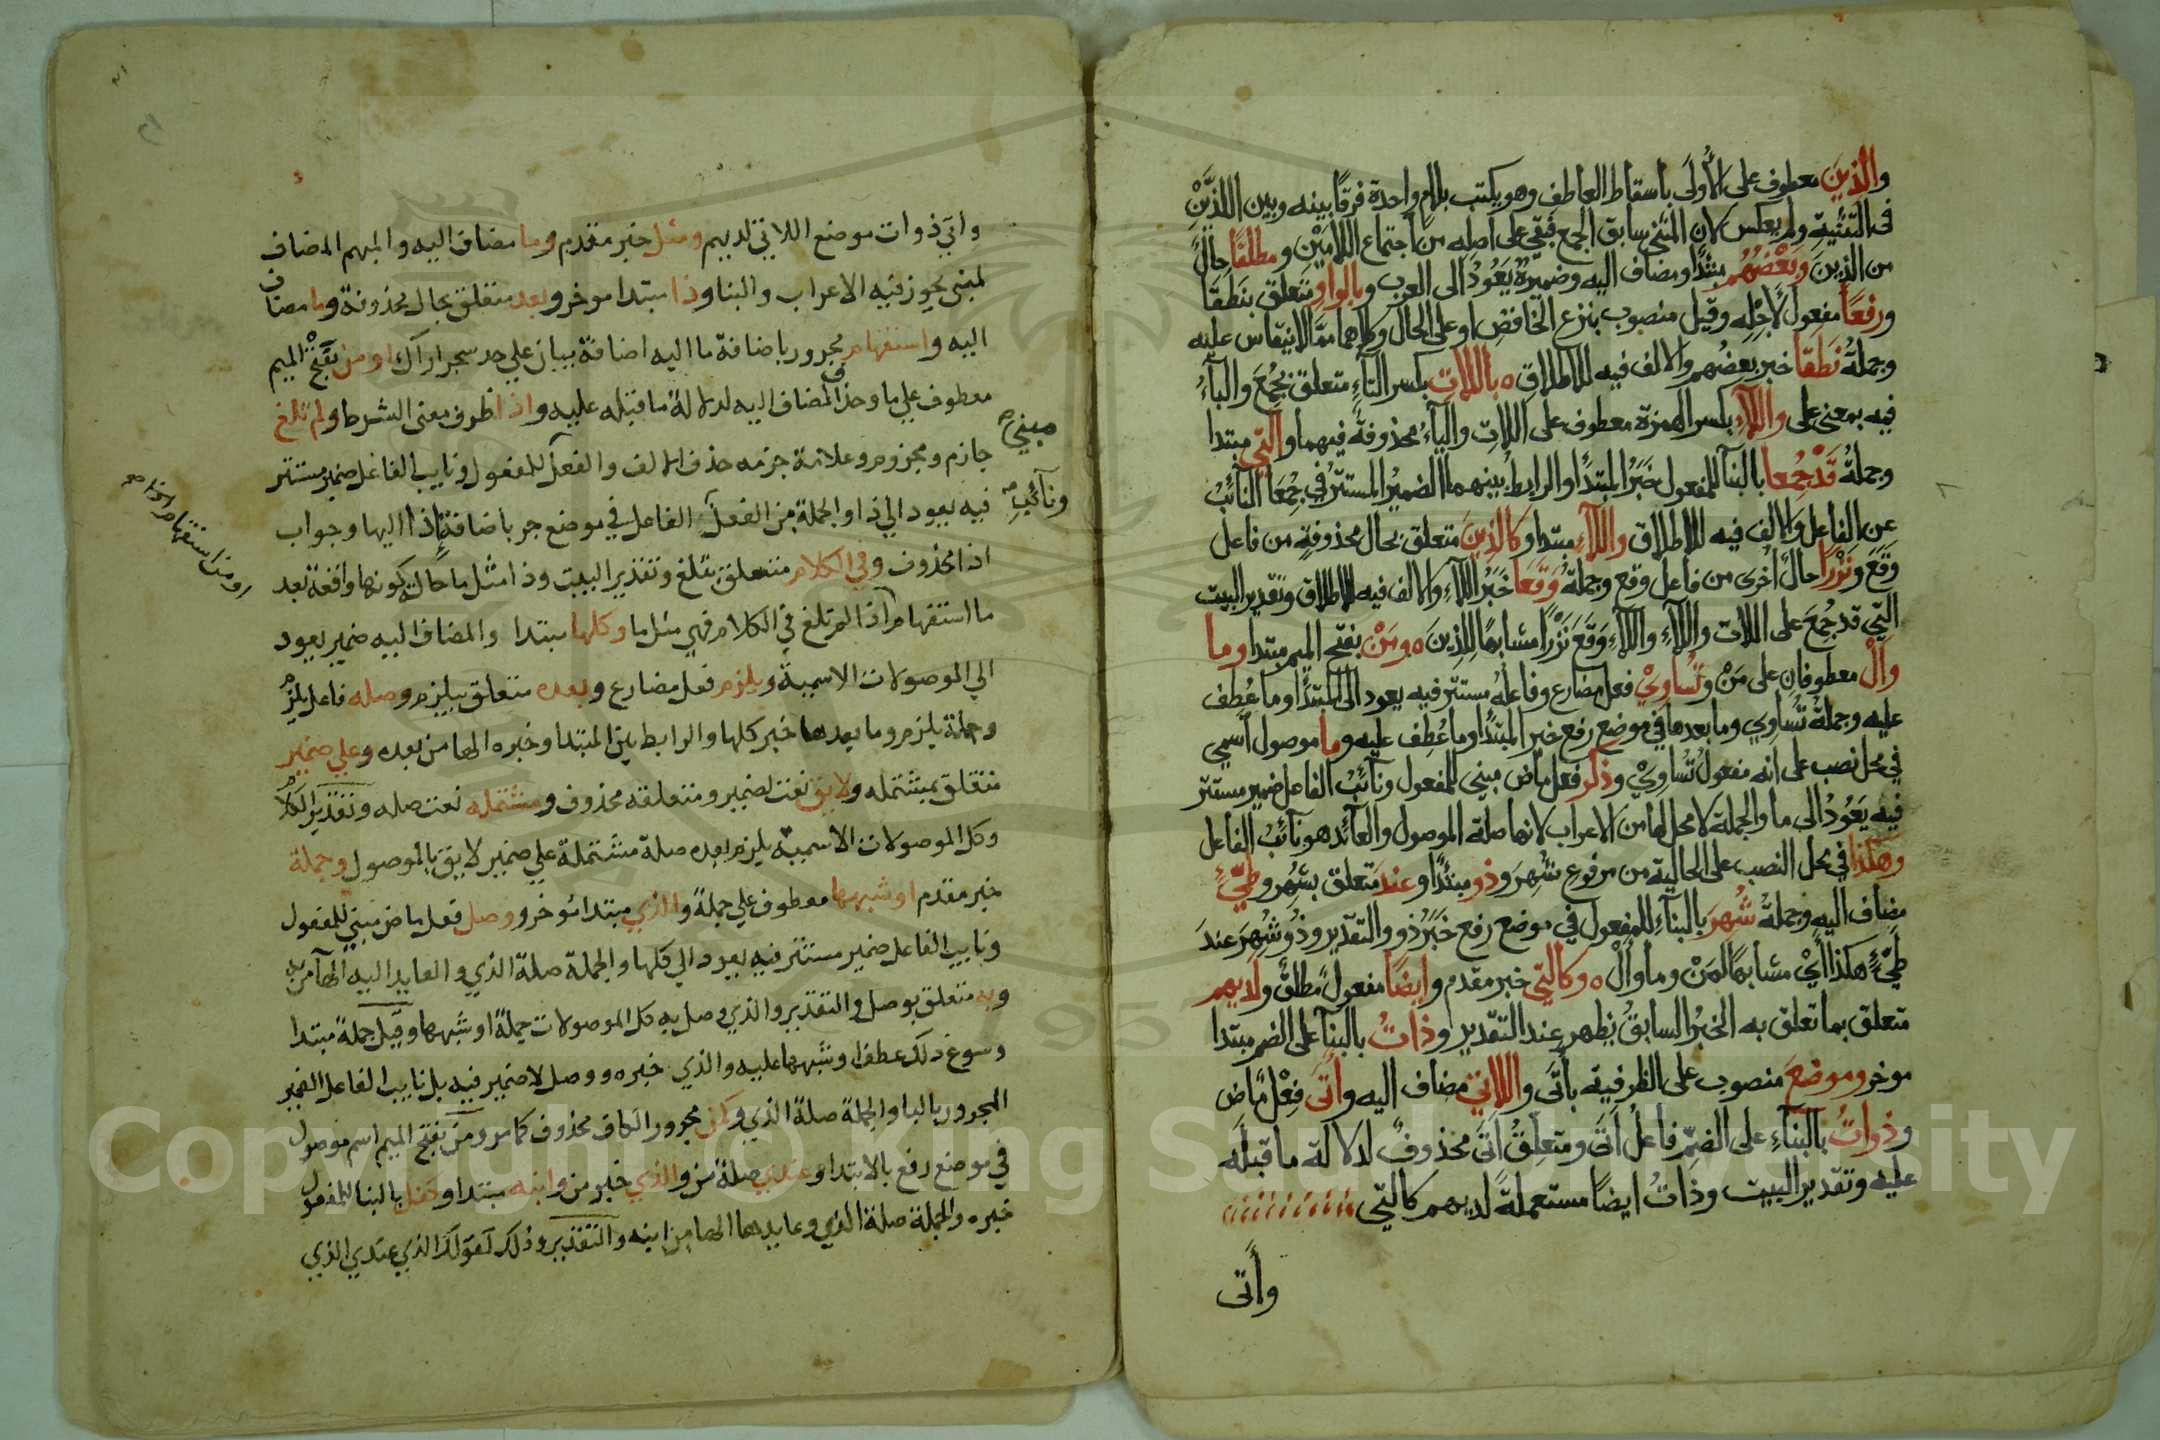 والذين معطوف على الأولى بأسقاط العاطف وهو يكتب بلام واحدة فرقا بينه وبين اللذين
في التثنية ولم يعكس لان المثنى سابق الجمع فبقي على اصله من اجتماع اللامين ومطلقا حال
من الذين وبعضهم مبتدأ ومضاف اليه وضميره يعود الى العرب وبالواو متعلق بنطقا
ورفعا مفعول لأجله وقيل منصوب بنزع الخافض او على الحال وكلاهما مما لا ينقاس عليه
وجملة نطقا خبر بعضهم والالف فيه للاطلاق ه باللات بكسر التاء متعلق بجمع والباء
فيه بمعنى على واللاء بكسر الهمزة معطوف على اللات والياء محذوفة فيهما والتي مبتدا
وجملة قد جمعا بالبنا للمفعول خبر المبتدأ والرابط بينهما الضمير المستتر في جمعا النائب
عن الفاعل والالف فيه للاطلاق واللاء مبتدا وكالذين متعلق بحال محذوفة من فاعل
وقع ونزرا حال أخرى من فاعل وقع وجملة وقعا خبر اللاء والالف فيه للاطلاق وتقدير البيت
التي قد جمع على اللات واللاء واللاء وقع نزرا مشابها للذين ه ومن بفتح الميم مبتدا وما
وال معطوفان على من وتساوي فعل مضارع وفاعله مستتر فيه يعود الى المبتدا وما عطف
عليه وجملة تساوي وما بعدها في موضع رفع خبر المبتدا وما عطف عليه وما موصول اسمي
في محل نصب على انه مفعول تساوي وذكر فعل ماض مبني للمفعول ونائب الفاعل ضمير مستتر
فيه يعود الى ما والجملة لا محل لها من الاعراب لانها صلة الموصول والعائد هو نائب الفاعل
وهكذا في محل النصب على الحالية من مرفوع شهر وذو مبتدأ وعند متعلق بشهر وطيء
مضاف اليه وجملة شهر بالبناء للمفعول في موضع رفع خبر ذو والتقدير وذو شهر عند
طيء هكذا أي مشابها لمن وما وأل ه وكالتي خبر مقدم وايضا مفعول مطلق ولديهم
متعلق بما تعلق به الخبر السابق يظهر عند التقدير وذات بالبنا على الضم مبتدا
موخر وموضع منصوب على الظرفية بأتى واللاتي مضاف اليه وأتى فعل ماض
وذوات بالبناء على الضم فاعل أتى ومتعلق أتى محذوف لدلالة ما قبله
عليه وتقدير البيت وذات ايضا مستعملة لديهم كالتي
وأتى
واتي ذوات موضع اللاتي لديهم ومثل خبر مقدم وما مضاف اليه والمبهم المضاف
لمبني يجوز فيه الاعراب والبنا وذا مبتدا موخر وبعد متعلق بحال محذوفة وما مضاف
اليه واستفهام مجرور باضافة ما اليه اضافة بيان علي حد سجر اراك او من بفتح الميم
معطوف علي ما وحذف المضاف اليه لدلالة ما قبله عليه واذا ظرف معنى الشرط ولم تلغ
جازم ومجزوم وعلامة جزمه حذف الالف والفعل للمفعول ونايب الفاعل ضمير مستتر
فيه يعود الي ذا والجملة من الفعل الفاعل في موضع جر باضافة اذا اليها وجواب
اذا محذوف وفي الكلام متعلق بتلغ وتقدير البيت وذا مثل ما حال كونها واقعة بعد
ما استفهام اذا لم تلغ في الكلام فهي مثل ما وكلها مبتدا والمضاف اليه ضمير يعود
الي الموصولات الاسمية ويلزم فعل مضارع وبعده متعلق بيلزم وصله فاعل يلزم
وجملة يلزم وما بعدها خبر كلها والرابط بين المبتدا وخبره الها من بعده وعلي ضمير
متعلق بمشتمله ولايق نعت لضمير ومتعلقه محذوف ومشتمله نعت صله وتقدير الكلام
وكل الموصولات الاسمية يلزم بعده صلة مشتملة علي ضمير لايق بالموصول وجملة
خبر مقدم او شبهها معطوف علي جملة والذي مبتدا موخر ووصل فعل ماض مبني للمفعول
ونايب الفاعل ضمير مستتر فيه يعود الي كلها والجملة صلة الذي والعايد اليه الها من به
وبه متعلق بوصل والتقدير والذي وصل به كل الموصولات جملة او شبهها وقيل جملة مبتدا
وسوغ ذلك عطف او شبهها عليه والذي خبره ووصل لا ضمير فيه بل نايب الفاعل الضمير
المجرور بالبا والجملة صلة الذي وكمن مجرور الكاف محذوف كما مر ومن بفتح الميم اسم موصول
في موضع رفع بالابتدا وعندي صلة من والذي خبر من وابنه مبتدا وكفل بالبنا للمفعول
خبره والجملة صلة الذي وعايدها الها من ابنه والتقدير وذلك كقولك الذي عندي الذي
مبني
ونائب
Copyright © King Saud University